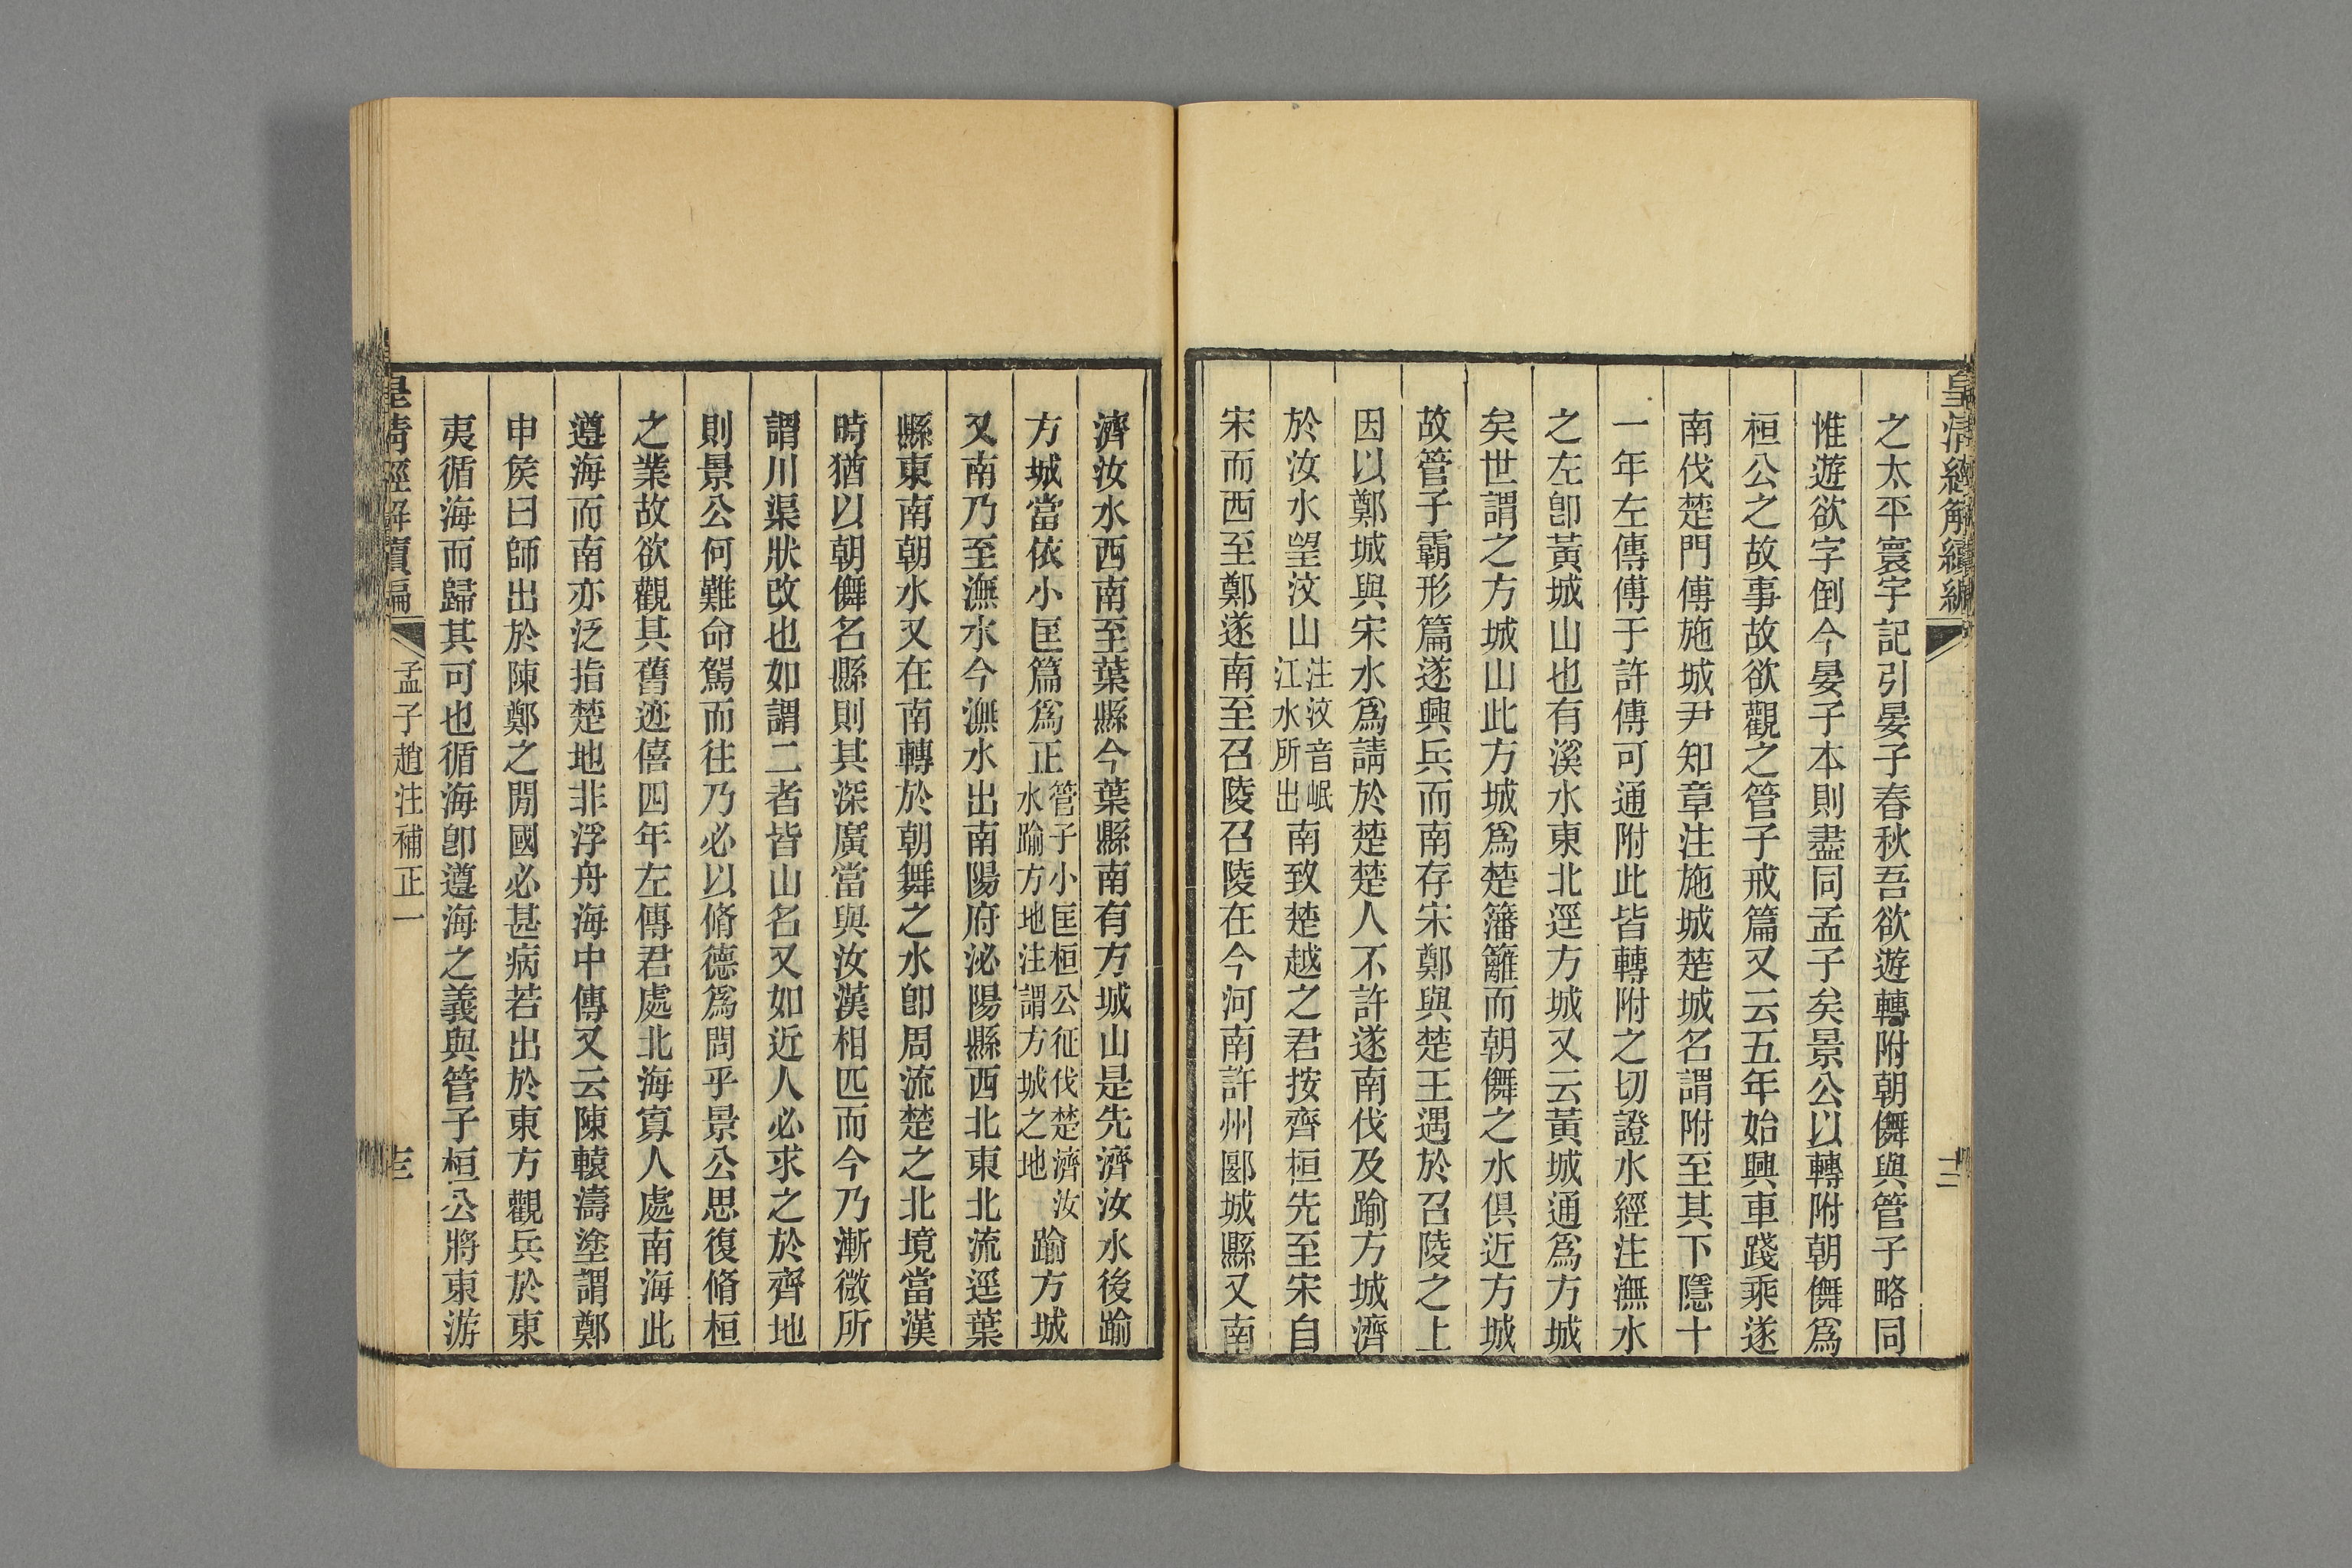 皇清經解續編
之太平寰宇記引晏子春秋吾欲遊轉附朝儛與管子略同
惟遊欲字倒今晏子本則盡同孟子矣景公以轉附朝儛爲
桓公之故事故欲觀之管子戒篇又云五年始興車踐乘遂
南伐楚門傅施城尹知章注施城楚城名謂附至其下隱十
一年左傳傅于許傅可通附此皆轉附之切證水經注潕水
之左卽黃城山也有溪水東北逕方城又云黃城通爲方城
矣世謂之方城山此方城爲楚籓籬而朝儛之水俱近方城
故管子霸形篇遂興兵而南存宋鄭與楚王遇於召陵之上
因以鄭城與宋水爲請於楚楚人不許遂南伐及踰方城濟
於汝水望汶山注汶音岷江水所出南致楚越之君按齊桓先至宋自
宋而西至鄭遂南至召陵召陵在今河南許州郾城縣又南
濟汝水西南至葉縣今葉縣南有方城山是先濟汝水後踰
方城當依小匡篇爲正管子小匡桓公征伐楚濟汝水踰方地注謂方城之地踰方城
又南乃至潕水今潕水出南陽府泌陽縣西北東北流逕葉
縣東南朝水又在南轉於朝舞之水卽周流楚之北境當漢
時猶以朝儛名縣則其深廣當與汝漢相匹而今乃漸微所
謂川渠狀改也如謂二者皆山名又如近人必求之於齊地
則景公何難命駕而往乃必以脩德爲問乎景公思復脩桓
之業故欲觀其舊迹僖四年左傳君處北海寡人處南海此
遵海而南亦泛指楚地非浮舟海中傳又云陳轅濤塗謂鄭
申侯曰師出於陳鄭之閒國必甚病若出於東方觀兵於東
夷循海而歸其可也循海卽遵海之義與管子桓公將東游
皇清經解續編
孟子趙注補正一